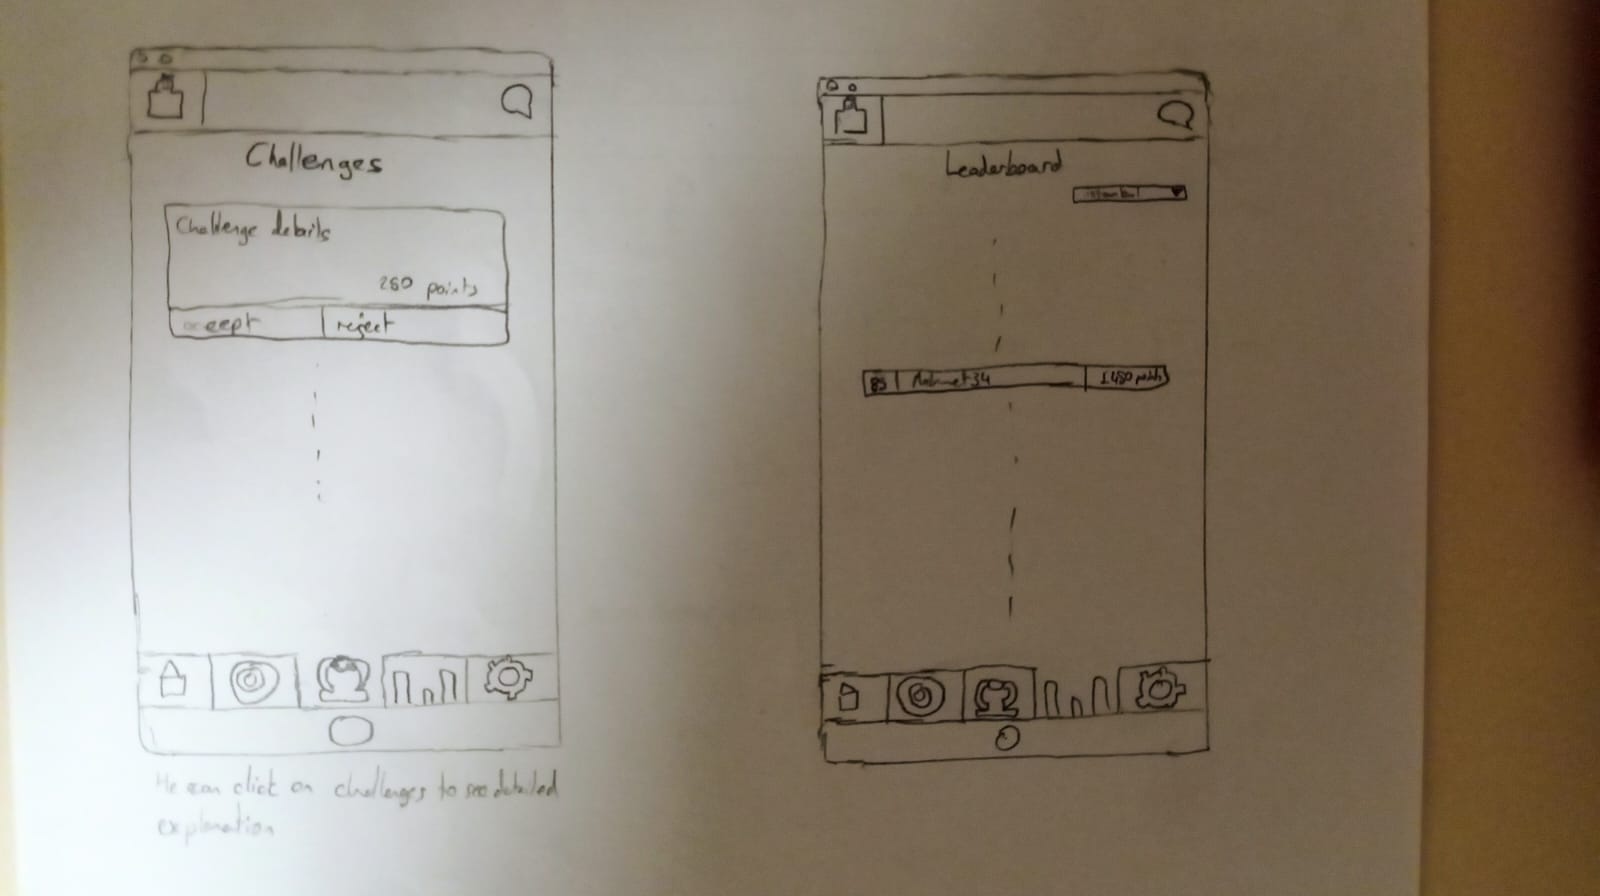 Challenges
Challenge details
250 points
accept
reject
He can click on challenges to see detailed
explanation
Leaderboard
istanbul
85
Mehmet34
1450 points